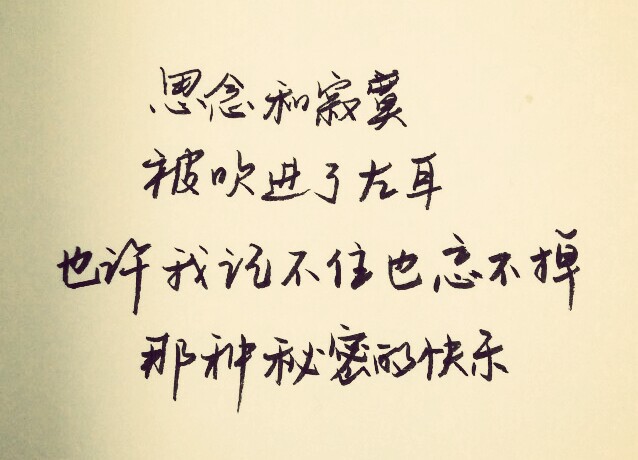 思念和寂寞
被吹进了左耳
也许我记不住也忘不掉
那种秘密的快乐